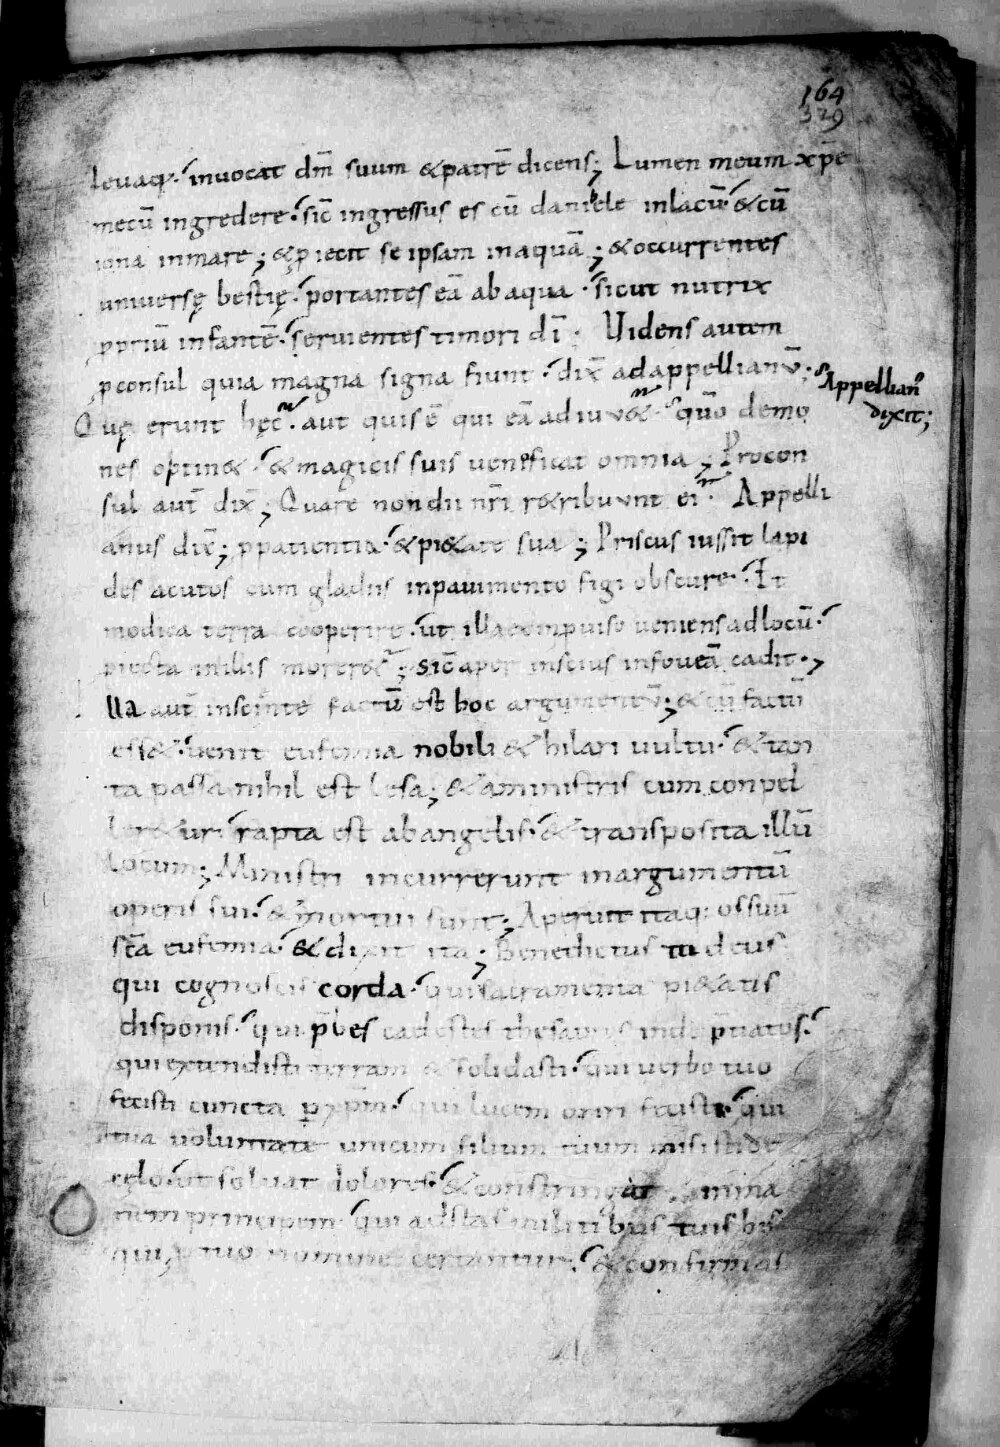 164
329
levaq: invocat dm̄ suum & patrē dicens; Lumen meum xp̄e
mecū ingredere. sic̄ ingressus es cū daniele inlacū. & cū
iona inmare; & ꝓiecit se ipsam inaquā; & occurrentes
universę bestię. portantes eā ab aqua. sicut nutrix
ꝓpriū infantē. servientes timori dī; Uidens autem
ꝓconsul quia magna signa fiunt. dix̄ ad appellianū;
Appellian᷒
dixit;
Quę erunt hęc. aut quis ē qui eā adiuv&. quō demo
nes optin&. & magicis suis veneficat omnia; Procon
sul aut̄ dix̄; Quare non dii nr̄i r&ribuunt ei. Appelli
anus dix̄; ꝑ patientia. & pi&ate sua; Priscus iussit lapi
des acutos cum gladiis inpavimento figi obscure. Et
modica terra cooperire. ut illa veniens ad locū.
in illis morer&ur; sic̄ aper inscius infoveā cadit.
lla aut̄ insciente factū est hoc argumentū; & cū factū
ess&. venit eufemia nobili & hilari vultu. & tan
ta passa nihil est lesa; & aministris cum conpel
ler&ur. rapta est ab angelis. & transposita illū
locum; Ministri incurrerunt inargumentū
operis sui. & mortui sunt; Aperuit itaq: os suū
sc̄a eufemia. & dixit ita; Benedictus tu deus
qui cognoscis corda. qui sacramenta pi&atis
disponis. qui p̄bes caelestes thesauros
qui extendisti terram & solidasti. qui verbo tuo
fecisti cuncta ꝑ xp̄m. qui lucem oriri fecisti. qui
tua voluntate unicum filium tuum misisti de
cęlo. ut solvat dolores. & constringat
nem principem. qui adstas militibus tuis his
qui ꝓ tuo nomine certantur. & confirmas